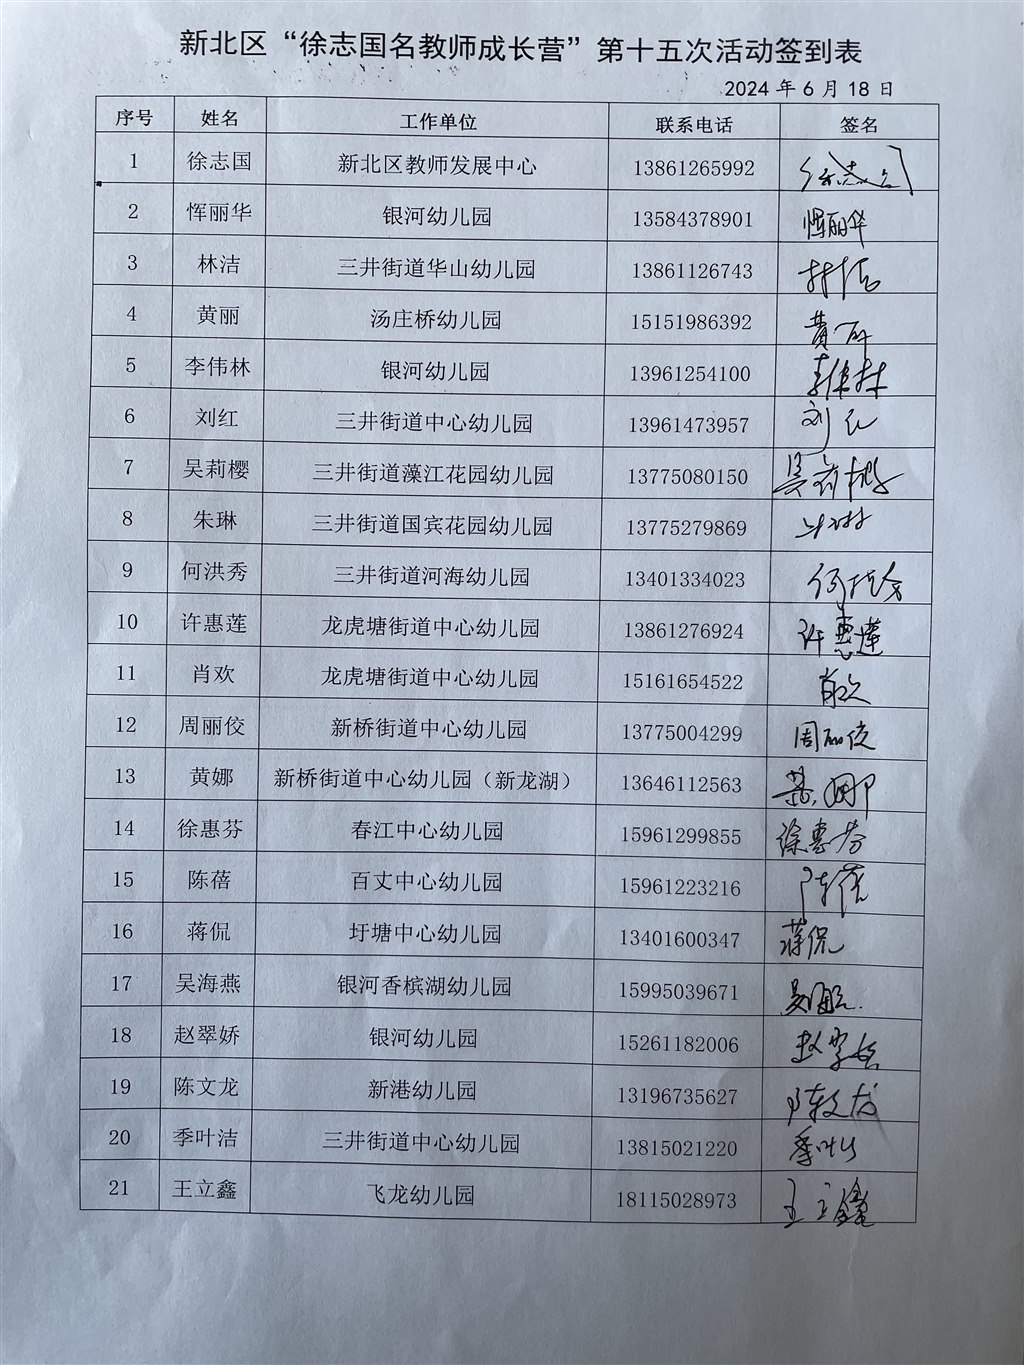 新北区“徐志国名教师成长营”第十五次活动签到表
2024 年 6 月 18 日
序号 姓名 工作单位 联系电话 签名
1 徐志国 新北区教师发展中心 13861265992 徐志国
2 恽丽华 银河幼儿园 13584378901 恽丽华
3 林洁 三井街道华山幼儿园 13861126743 林洁
4 黄丽 汤庄桥幼儿园 15151986392 黄丽
5 李伟林 银河幼儿园 13961254100 李伟林
6 刘红 三井街道中心幼儿园 13961473957 刘红
7 吴莉樱 三井街道藻江花园幼儿园 13775080150 吴莉樱
8 朱琳 三井街道国宾花园幼儿园 13775279869 朱琳
9 何洪秀 三井街道河海幼儿园 13401334023 何洪秀
10 许惠莲 龙虎塘街道中心幼儿园 13861276924 许惠莲
11 肖欢 龙虎塘街道中心幼儿园 15161654522 肖欢
12 周丽佼 新桥街道中心幼儿园 13775004299 周丽佼
13 黄娜 新桥街道中心幼儿园（新龙湖） 13646112563 黄娜
14 徐惠芬 春江中心幼儿园 15961299855 徐惠芬
15 陈蓓 百丈中心幼儿园 15961223216 陈蓓
16 蒋侃 圩塘中心幼儿园 13401600347 蒋侃
17 吴海燕 银河香槟湖幼儿园 15995039671 吴海燕
18 赵翠娇 银河幼儿园 15261182006 赵翠娇
19 陈文龙 新港幼儿园 13196735627 陈文龙
20 季叶洁 三井街道中心幼儿园 13815021220 季叶洁
21 王立鑫 飞龙幼儿园 18115028973 王立鑫